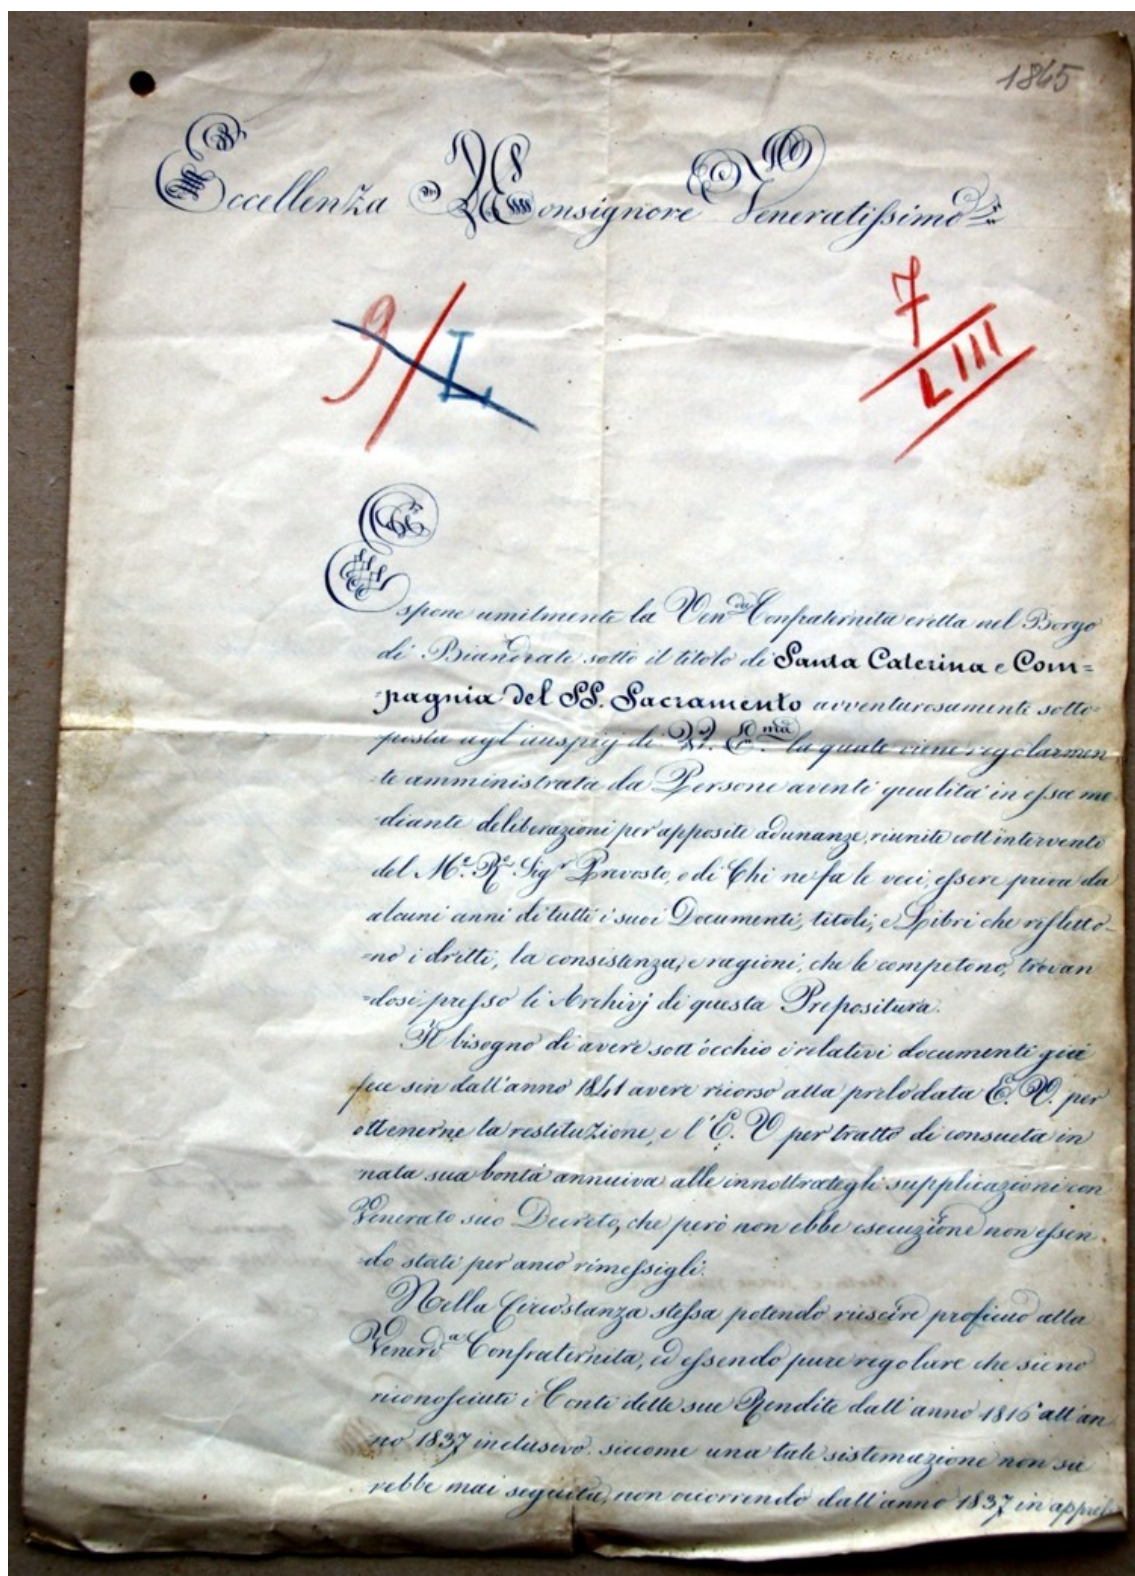 1845
Eccellenza Monsignore Veneratissimo
9/L
7
LIII
Espone umilmente la Ven.da Confraternita eretta nel Borgo
di Biandrate sotto il titolo di Santa Caterina e Com=
=pagnia del SS. Sacramento avventurosamente sotto=
posta agl'auspizj di V. E. la quale viene regolarmen
=te amministrata da Persone aventi qualità in essa me
=diante deliberazioni per apposite adunanze, riunite coll'intervento
del M.o R.o Sig.r Prevosto, o di Chi ne fa le veci, essere priva da
alcuni anni di tutti i suoi Documenti, titoli, e Libri che rifletto=
=no i dritti, la consistenza, e ragioni, che le competono, trovan
=dosi presso li Archivj di questa Prepositura.
Il bisogno di avere sott'occhio i relativi documenti già
fece sin dall'anno 1841 avere ricorso alla prelodata E. V. per
ottenerne la restituzione, e l'E. V per tratto di consueta in
nata sua bontà annuiva alle innoltrategli supplicazioni con
Venerato suo Decreto, che però non ebbe esecuzione non essen=
=do stati per anco rimessigli.
Nella Circostanza stessa potendo riescire proficuo alla
Venerd.a Confraternita, ed essendo pure regolare che sieno
riconosciuti i Conti delle sue Rendite dall'anno 1816 all'an
no 1837 inclusivo. siccome una tale sistemazione non sa
rebbe mai seguita, non occorrendo dall'anno 1837 in